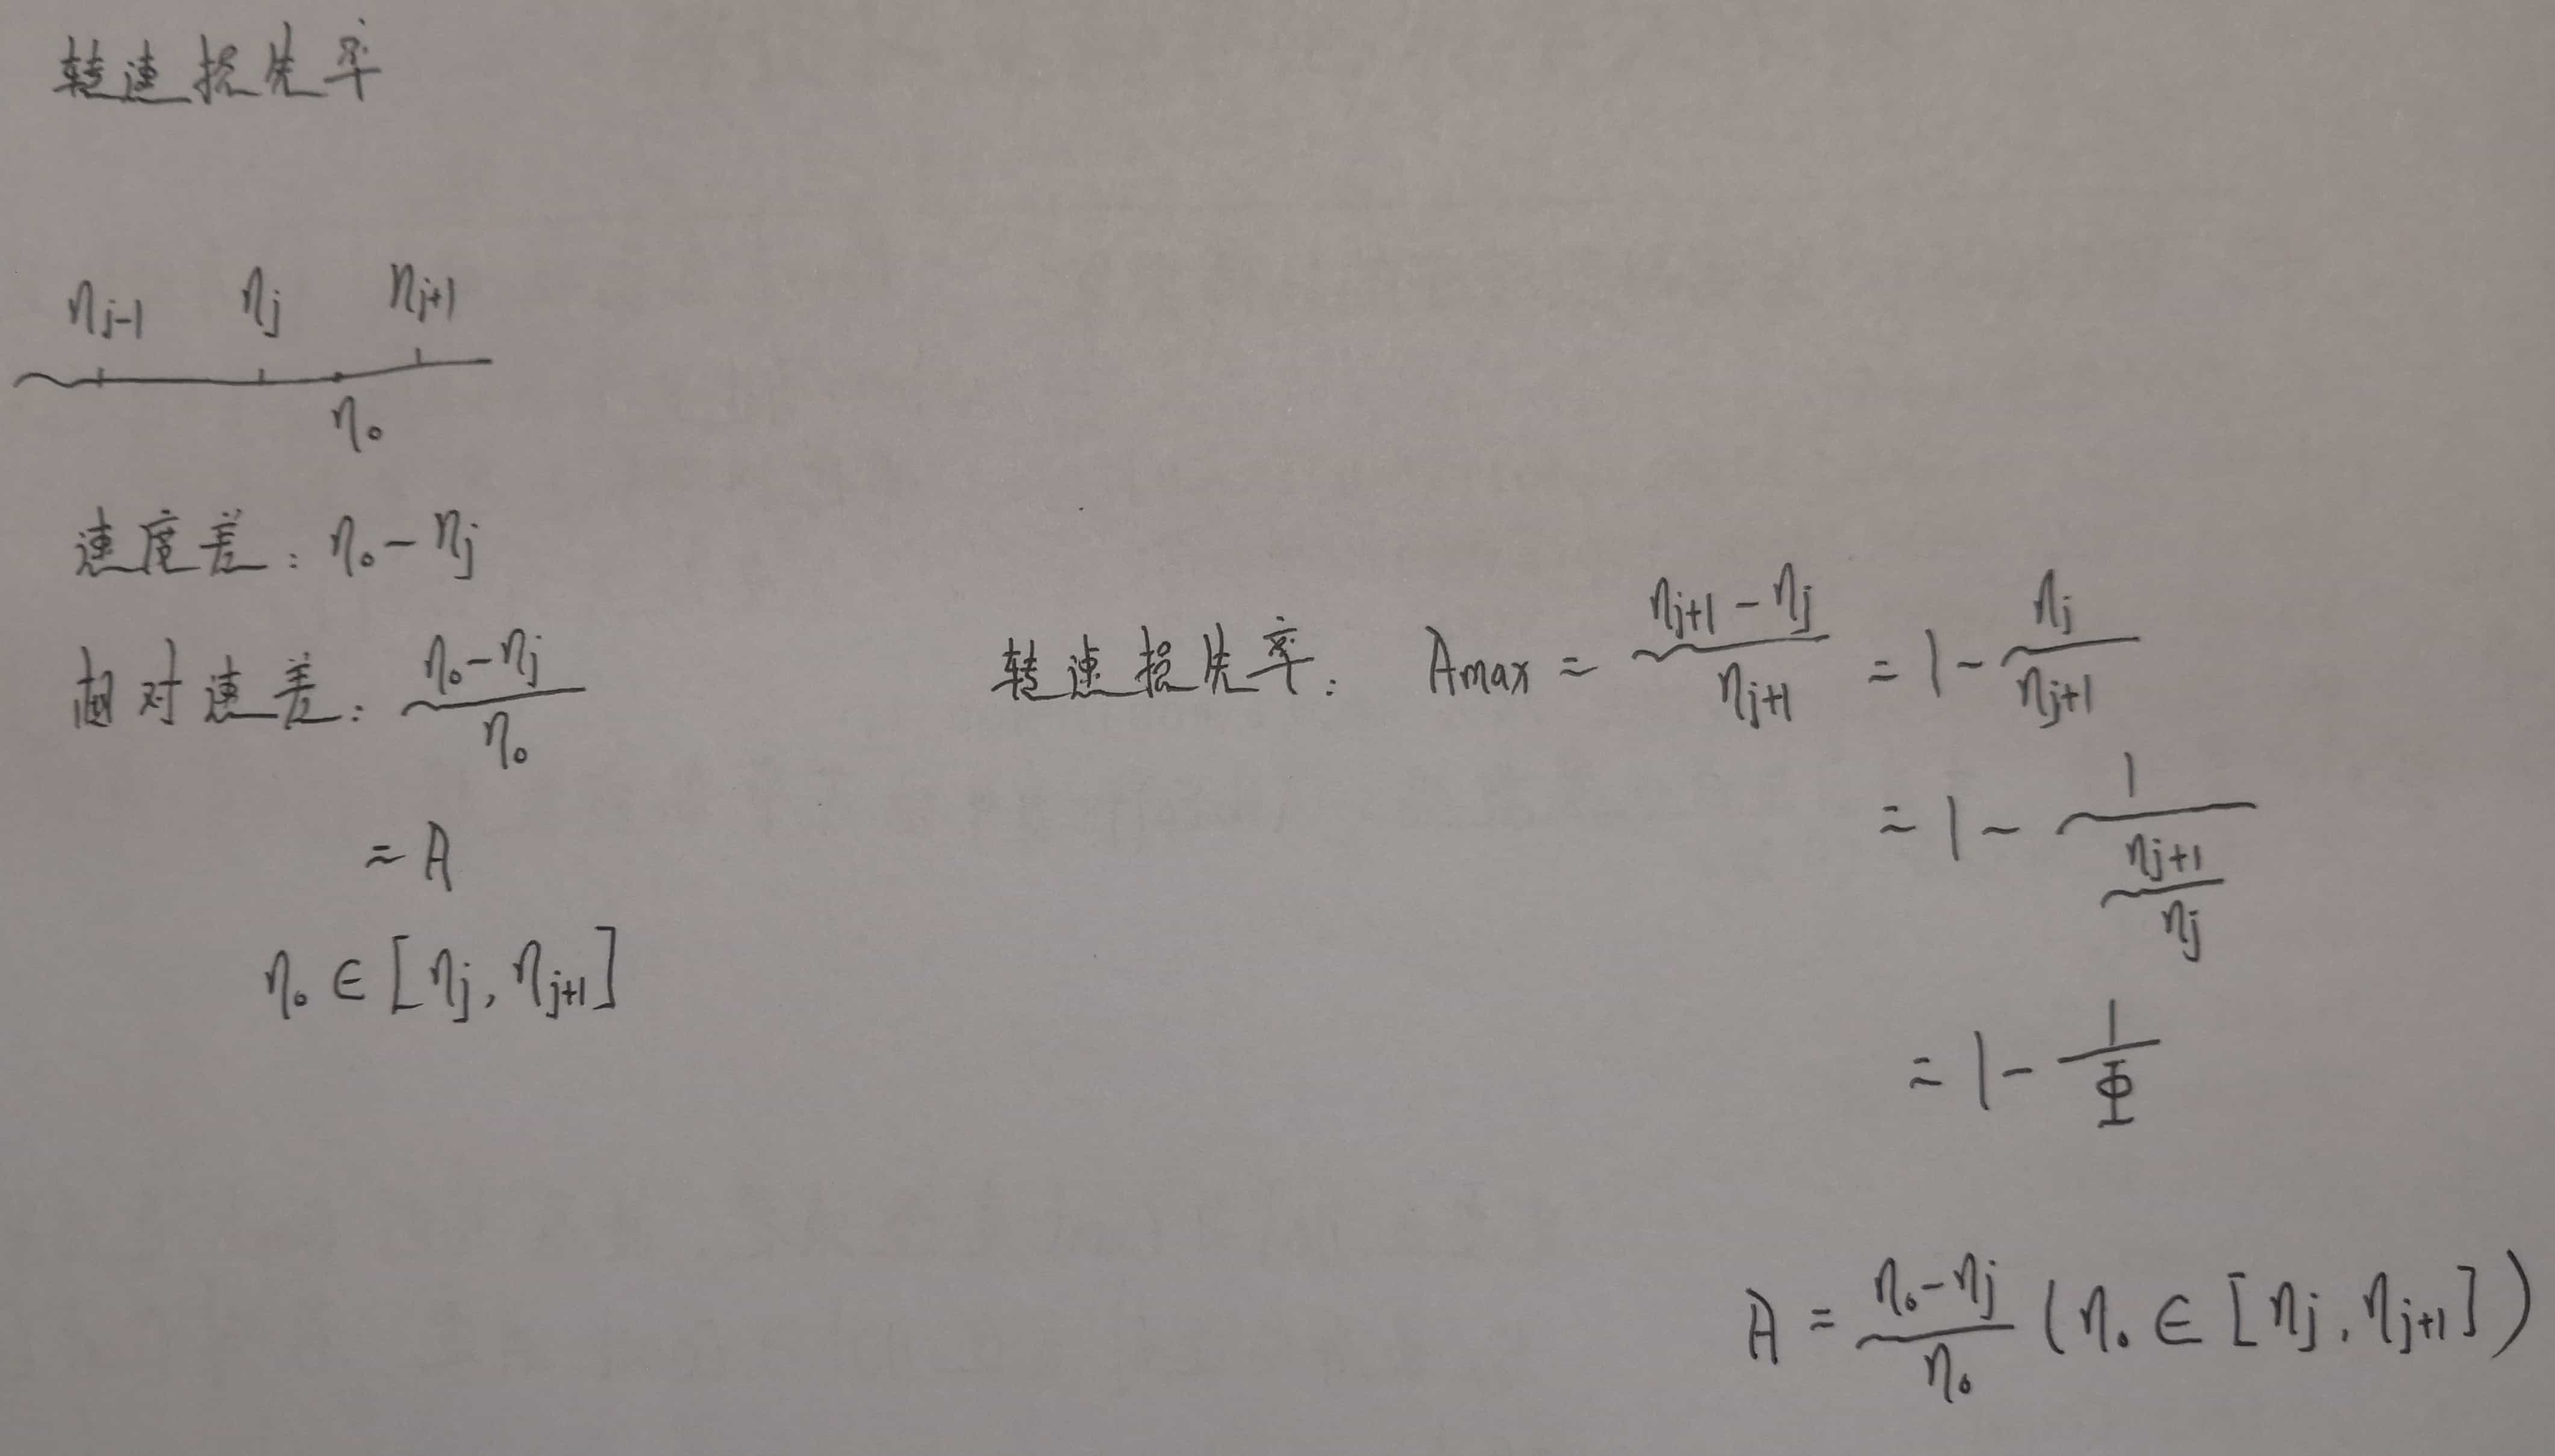 转速损失率
n_{j-1} n_j n_{j+1}
n_0
速度差: n_0 - n_j
相对速差: \frac{n_0 - n_j}{n_0}
= A
n_0 ∈ [n_j, n_{j+1}]
转速损失率: Amax = \frac{n_{j+1} - n_j}{n_{j+1}} = 1 - \frac{n_j}{n_{j+1}}
= 1 - \frac{1}{\frac{n_{j+1}}{n_j}}
= 1 - \frac{1}{Φ}
A = \frac{n_0 - n_j}{n_0} (n_0 ∈ [n_j, n_{j+1}])